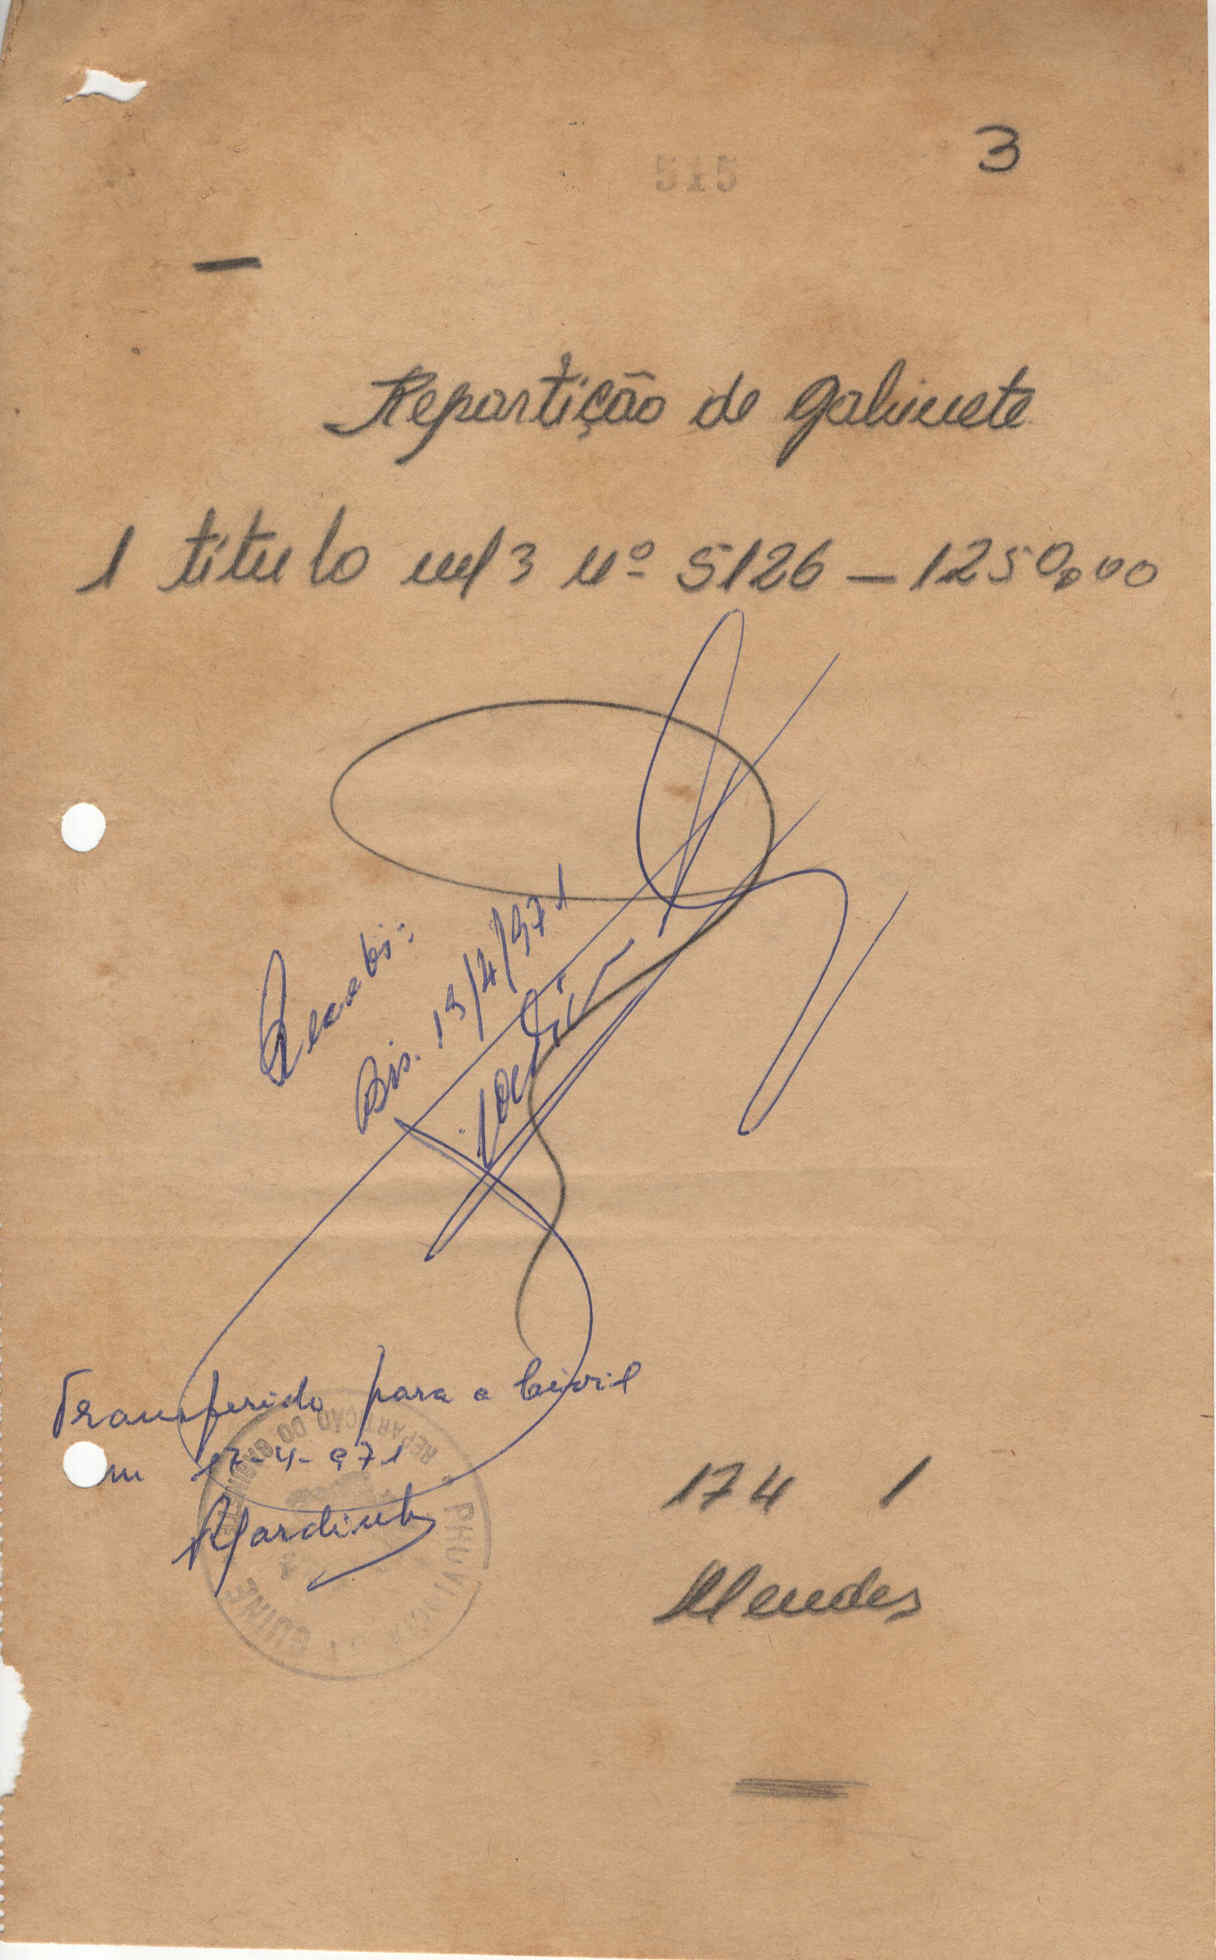 3
515
Repartição de gabinete
1 titulo m/3 nº 5126 — 1250,00
Recebi:
Bis. 19/4/971
Transferido para a Civil
em 17-4-971
174 1
Mendes
REPARTIÇÃO DO GABINETE
PROVINCIA DA GUINÉ